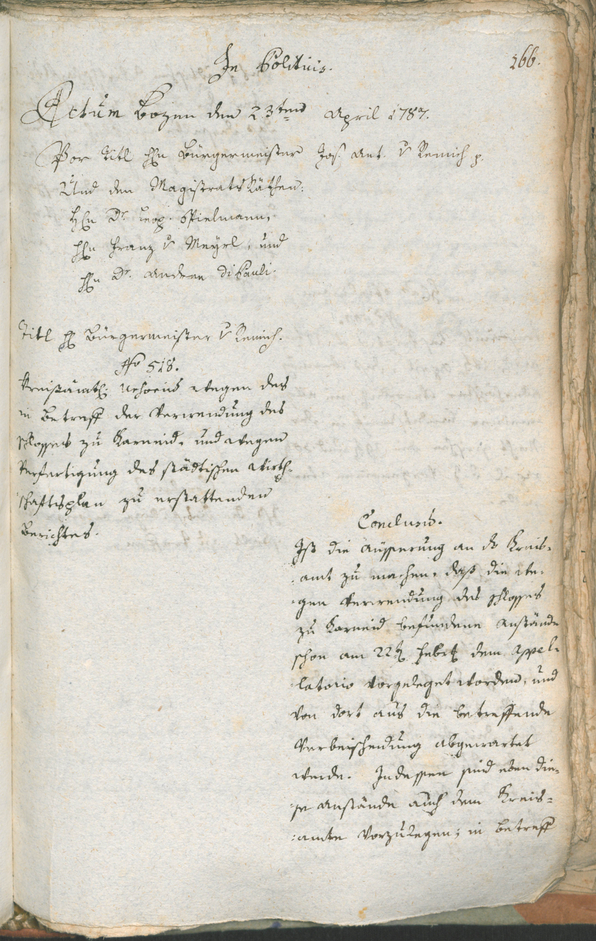 166.
In Politicis.
Actum Bozen den 23ten April 1787.
Vor Titl Hn Bürgermeister Jos. Ant. v Remich p.
Und den Magistrats Räthen.
Hn Dr. Leop. Spielmann,
Hn Franz v Mayrl, und
Hn Dr. Andreen Di Pauli.
Titl H Bürgermeister v Remich.
No 518.
Kreisämtl: wegen des
in Betreff der Verwendung des
Schlosses zu Karneid, und wegen
Verfertigung des städtischen Wirth-
schaftsplan zu erstattenden
Berichtes.
Conclusum.
Ist die Äusserung an das Kreis-
amt zu machen, daß die we-
gen Verwendung des Schlosses
zu Karneid befundene Anstände
schon am 22t Febr dem Appel-
latorio vorgeleget worden, und
von dort aus die betreffende
Verbescheidung abgewartet
werde. Indessen sind eben die-
se Anstände auch dem Kreis-
amte vorzulegen; in Betreff